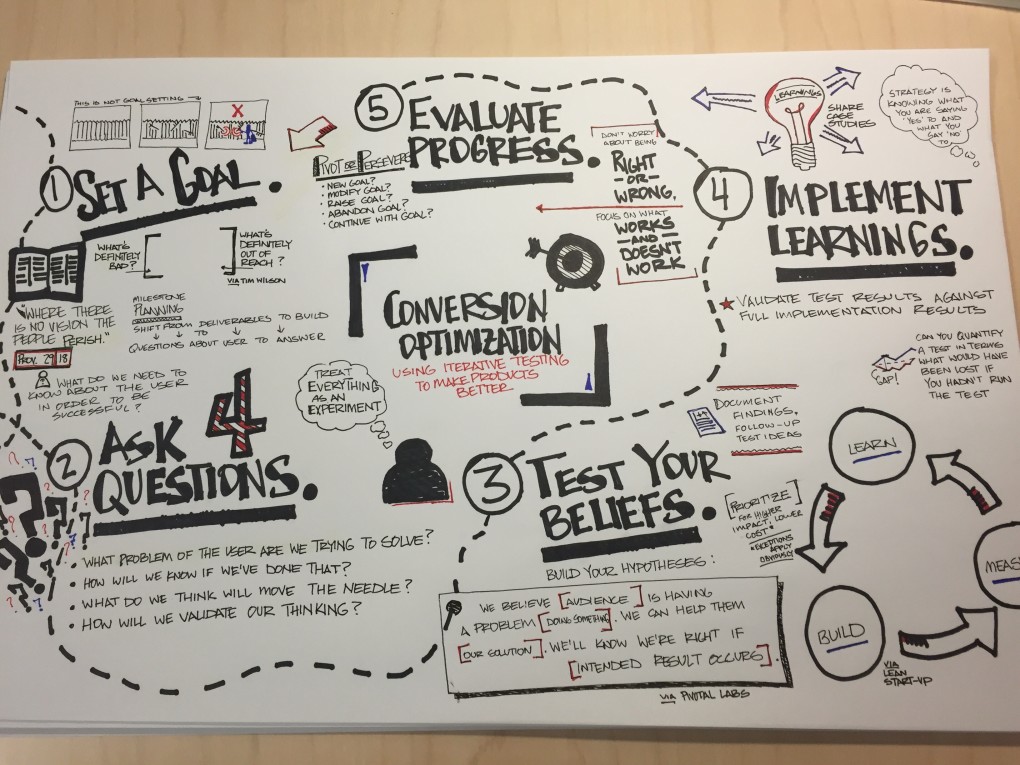 THIS IS NOT GOAL SETTING
1 SET A GOAL.
WHAT'S
DEFINITELY
BAD?
WHAT'S
DEFINITELY
OUT OF
REACH?
VIA TIM WILSON
"WHERE THERE
IS NO VISION THE
PEOPLE PERISH."
PROV. 29 18
MILESTONE
PLANNING
SHIFT FROM DELIVERABLES TO BUILD
TO
QUESTIONS ABOUT USER TO ANSWER
WHAT DO WE NEED TO
KNOW ABOUT THE USER
IN ORDER TO BE
SUCCESSFUL?
2 ASK 4
QUESTIONS.
• WHAT PROBLEM OF THE USER ARE WE TRYING TO SOLVE?
• HOW WILL WE KNOW IF WE'VE DONE THAT?
• WHAT DO WE THINK WILL MOVE THE NEEDLE?
• HOW WILL WE VALIDATE OUR THINKING?
CONVERSION
OPTIMIZATION
USING ITERATIVE TESTING
TO MAKE PRODUCTS
BETTER
TREAT
EVERYTHING
AS AN
EXPERIMENT
3 TEST YOUR
BELIEFS.
BUILD YOUR HYPOTHESES:
WE BELIEVE [AUDIENCE] IS HAVING
A PROBLEM [DOING SOMETHING]. WE CAN HELP THEM
[OUR SOLUTION]. WE'LL KNOW WE'RE RIGHT IF
[INTENDED RESULT OCCURS].
VIA PIVOTAL LABS
[PRIORITIZE]
FOR HIGHER
IMPACT, LOWER
COST*
*EXCEPTIONS
APPLY
OBVIOUSLY
DOCUMENT
FINDINGS,
FOLLOW-UP
TEST IDEAS
LEARN
MEAS
BUILD
VIA
LEAN
START-UP
4 IMPLEMENT
LEARNINGS.
VALIDATE TEST RESULTS AGAINST
FULL IMPLEMENTATION RESULTS
GAP!
CAN YOU QUANTIFY
A TEST IN TERMS
WHAT WOULD HAVE
BEEN LOST IF
YOU HADN'T RUN
THE TEST
LEARNINGS
SHARE
CASE
STUDIES
STRATEGY IS
KNOWING WHAT
YOU ARE SAYING
'YES' TO AND
WHAT YOU
SAY 'NO'
TO
5 EVALUATE
PROGRESS.
PIVOT OR PERSEVERE
• NEW GOAL?
• MODIFY GOAL?
• RAISE GOAL?
• ABANDON GOAL?
• CONTINUE WITH GOAL?
DON'T WORRY
ABOUT BEING
RIGHT
-OR-
WRONG,
FOCUS ON WHAT
WORKS
-AND-
DOESN'T
WORK